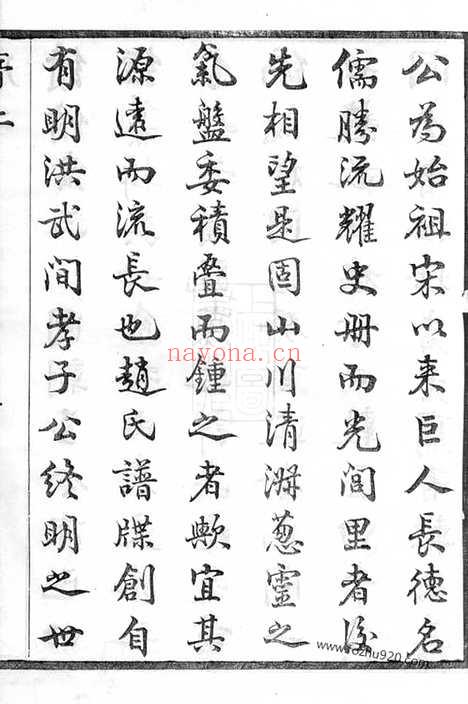 公為始祖宋以来巨人長德名
儒勝流耀史冊而光閭里者後
先相望是固山川清淑蔥靈之
氣盤委積疊而鍾之者歟宜其
源遠而流長也趙氏譜牒創自
有明洪武间孝子公終明之世
序二
nayona.cn
www.fozhu920.com